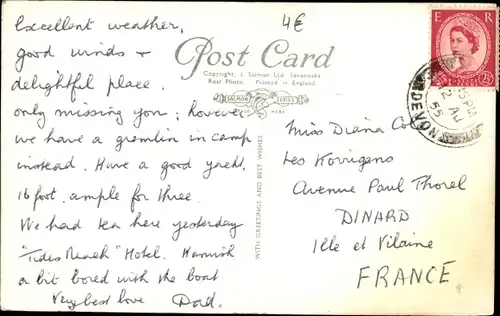 Excellent weather,
good winds +
delightful place.
only missing you; however
we have a gremlin in camp
instead. Have a good yacht,
16 foot. ample for three.
We had tea here yesterday
"Tides Reach" Hotel.
a bit bored with the boat
Very best love Dad.
4€
Post Card
Copyright, J. Salmon Ltd Sevenoaks
Real Photo. Printed in England
SALMON SERIES
WITH GREETINGS AND BEST WISHES
E R
2½
PM
2 AU
55
DEVON
Miss Diana
Les Korrigans
Avenue Paul Thorel
DINARD
Ille et Vilaine
FRANCE